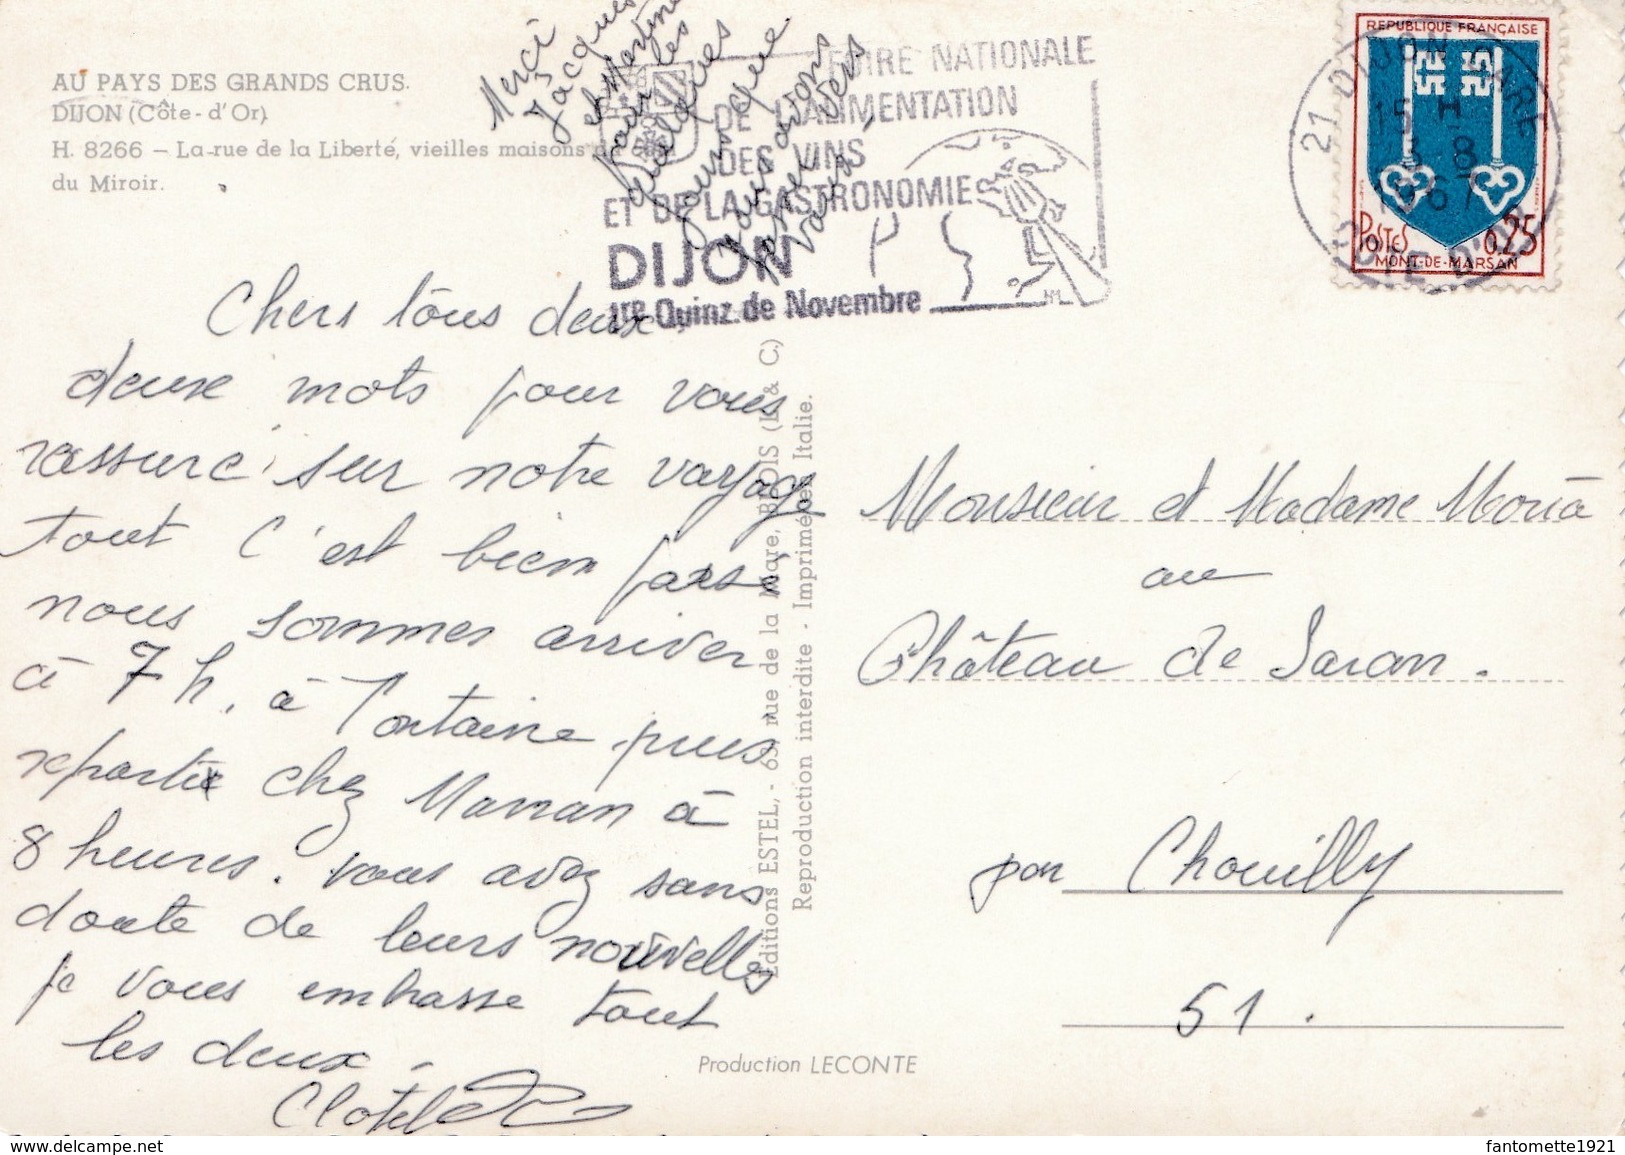 AU PAYS DES GRANDS CRUS.
DIJON (Côte-d'Or)
H. 8266 – La rue de la Liberté, vieilles maisons du
du Miroir.
Merci
Jacques
et Martine
pour les
quelques
jours que
nous avons
passer vers
vous
FOIRE NATIONALE
DE L'ALIMENTATION
DES VINS
ET DE LA GASTRONOMIE
DIJON
1re Quinz. de Novembre
REPUBLIQUE FRANÇAISE
POSTES 0,25
MONT-DE-MARSAN
21 DIJON GARE
15 H
3 - 8
1967
COTE D'OR
Chers tous deux
deux mots pour vous
rassuré sur notre voyage
tout c'est bien passé
nous sommes arriver
à 7 h. à Fontaine puis
repartie chez Marran à
8 heures. vous avez sans
doute de leurs nouvelles
je vous embrasse tout
les deux.
Clotilde
Editions ESTEL, - 63, rue de la Mare, BLOIS (L. & C.)
Reproduction interdite - Imprimé en Italie.
Production LECONTE
Monsieur et Madame Moria
au
Château de Saran.
par Chouilly
51.
www.delcampe.net
fantomette1921